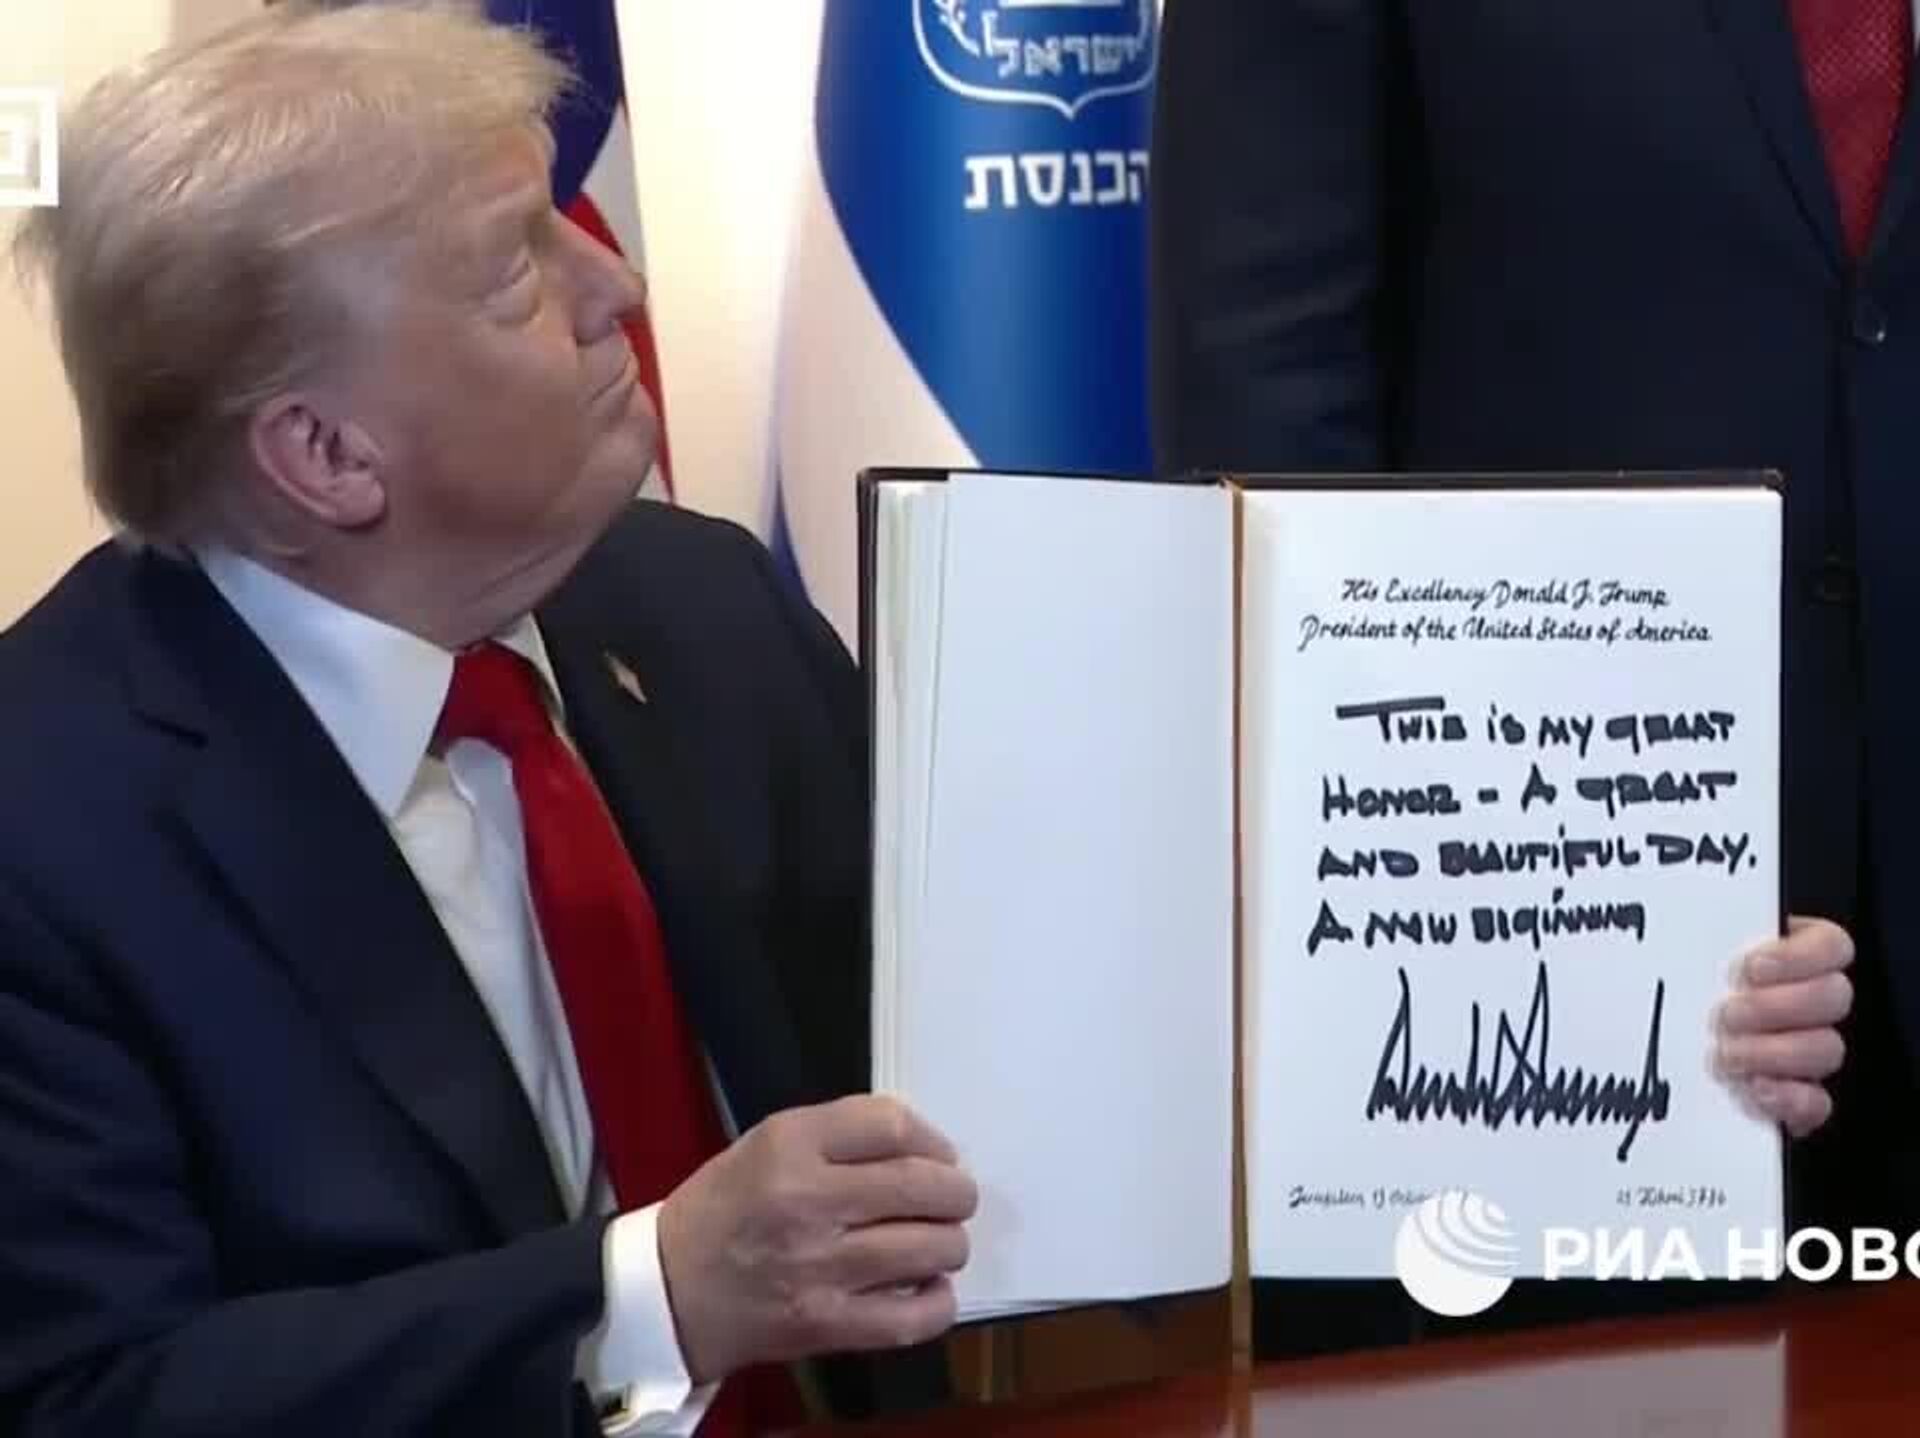 ישראל
הכנסת
His Excellency Donald J. Trump
President of the United States of America
THIS IS MY GREAT
HONOR - A GREAT
AND BEAUTIFUL DAY.
A NEW BEGINNING
Jerusalem, 13
РИА НОВО